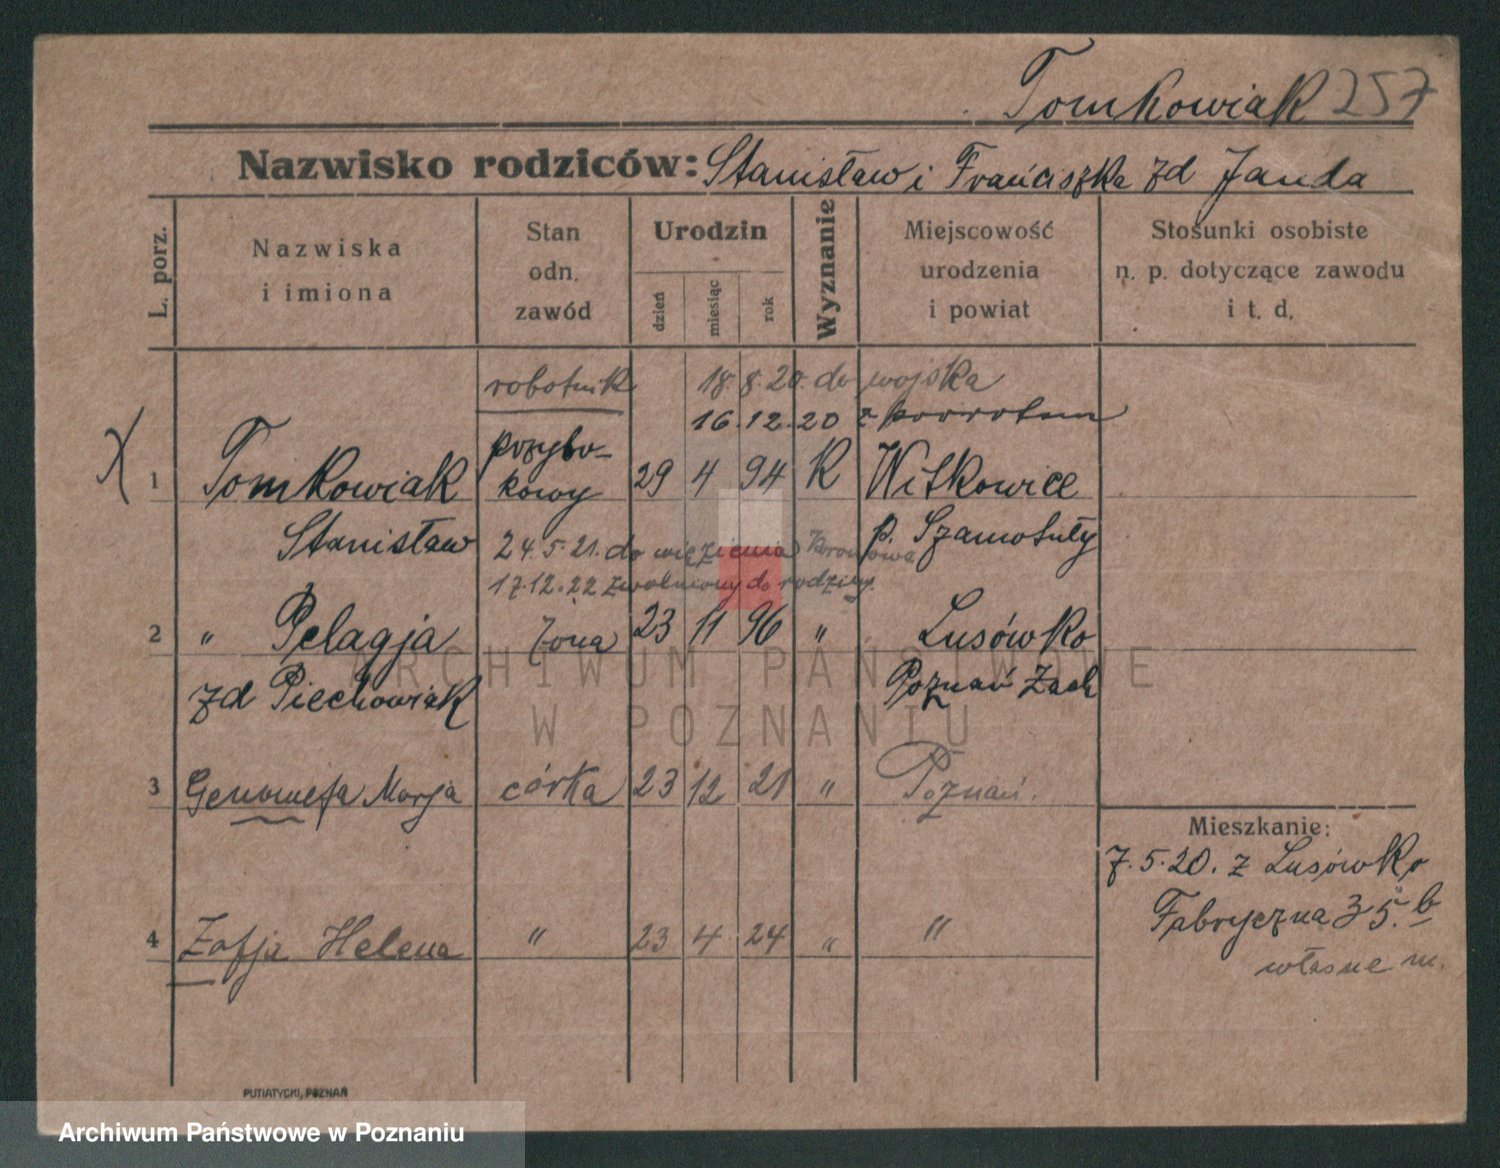 Tomkowiak 257
Nazwisko rodziców: Stanisław i Franciszka zd Janda
L. porz.
Nazwiska
i imiona
Stan
odn.
zawód
Urodzin
dzień
miesiąc
rok
Wyznanie
Miejscowość
urodzenia
i powiat
Stosunki osobiste
n. p. dotyczące zawodu
i t. d.
robotnik 18.8.20. do wojska
16.12.20 z powrotem
X
1 Tomkowiak 29 4 94 K Witkowice
Stanisław p. Szamotuły
24.5.21. do więzienia Koronowa
17.12.22 zwolniony do rodziny.
2 " Pelagja żona 23 11 96 " Lusówko
zd Piechowiak Poznań Zach
3 Genowefa Marja córka 23 12 21 " Poznań.
4 Zofja Helena " 23 4 24 " "
Mieszkanie:
7.5.20. z Lusówko
Fabryczna 35. b
własne m.
PUTIATYCKI, POZNAŃ
ARCHIWUM PAŃSTWOWE
W POZNANIU
Archiwum Państwowe w Poznaniu